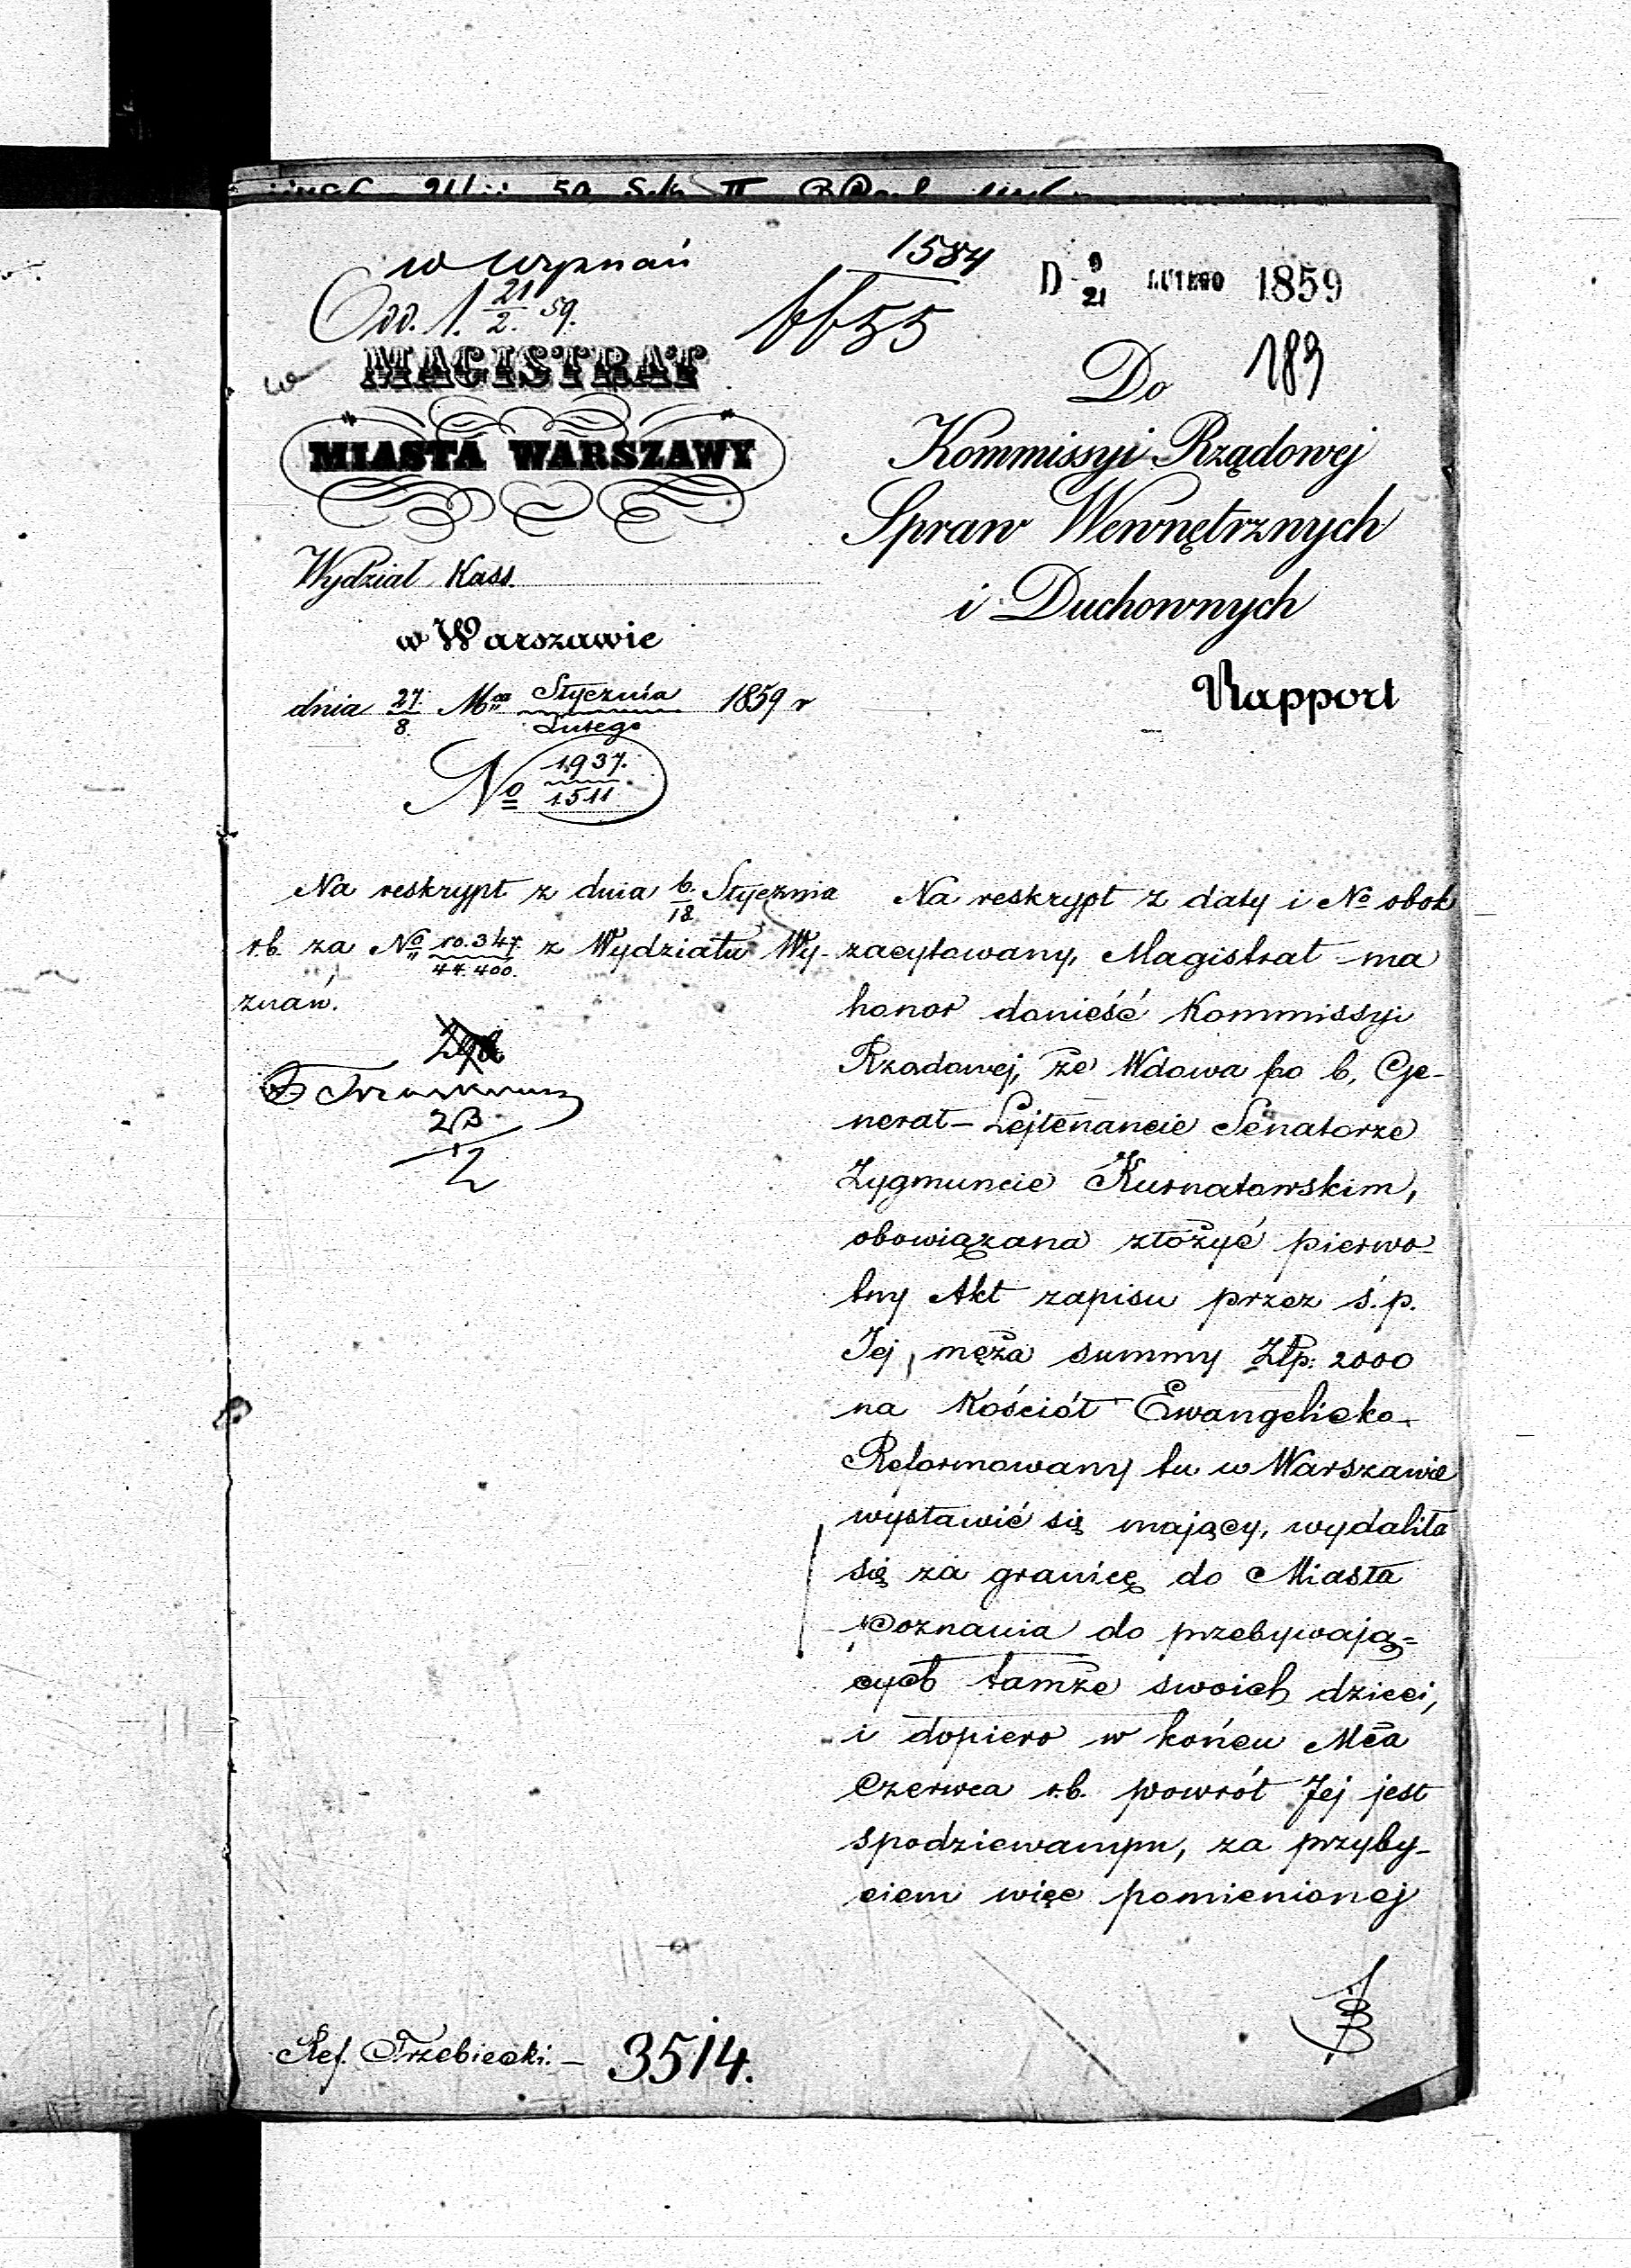 w wyznań
Odd. 1. 21/2. 59.
1584
6655
D 9/21 LUTEGO 1859
189
MAGISTRAT
MIASTA WARSZAWY
Wydział Kass.
w Warszawie
dnia 27/8 Mca Stycznia/Lutego 1859 r
No 1937./1511
Do
Kommissyi Rządowej
Spraw Wewnętrznych
i Duchownych
Rapport
Na reskrypt z dnia 6/18 Stycznia
r.b. za No 10.347/44.400. z Wydziału Wy-
znań.
Na reskrypt z daty i No obok
zacytowany, Magistrat ma
honor donieść Kommissyi
Rządowej, że Wdowa po b. Ge-
nerał-Lejtenancie Senatorze
Zygmuncie Kurnatowskim,
obowiązana złożyć pierwo-
tny Akt zapisu przez ś.p.
Jej męża summy Złp: 2000
na Kościół Ewangelicko-
Reformowany tu w Warszawie
wystawić się mający, wydaliła
się za granicę do Miasta
Poznania do przebywają=
cych tamże swoich dzieci,
i dopiero w końcu Mca
Czerwca r.b. powrót Jej jest
spodziewanym, za przyby-
ciem więc pomienionej
Ref. Trzebiecki. – 3514.